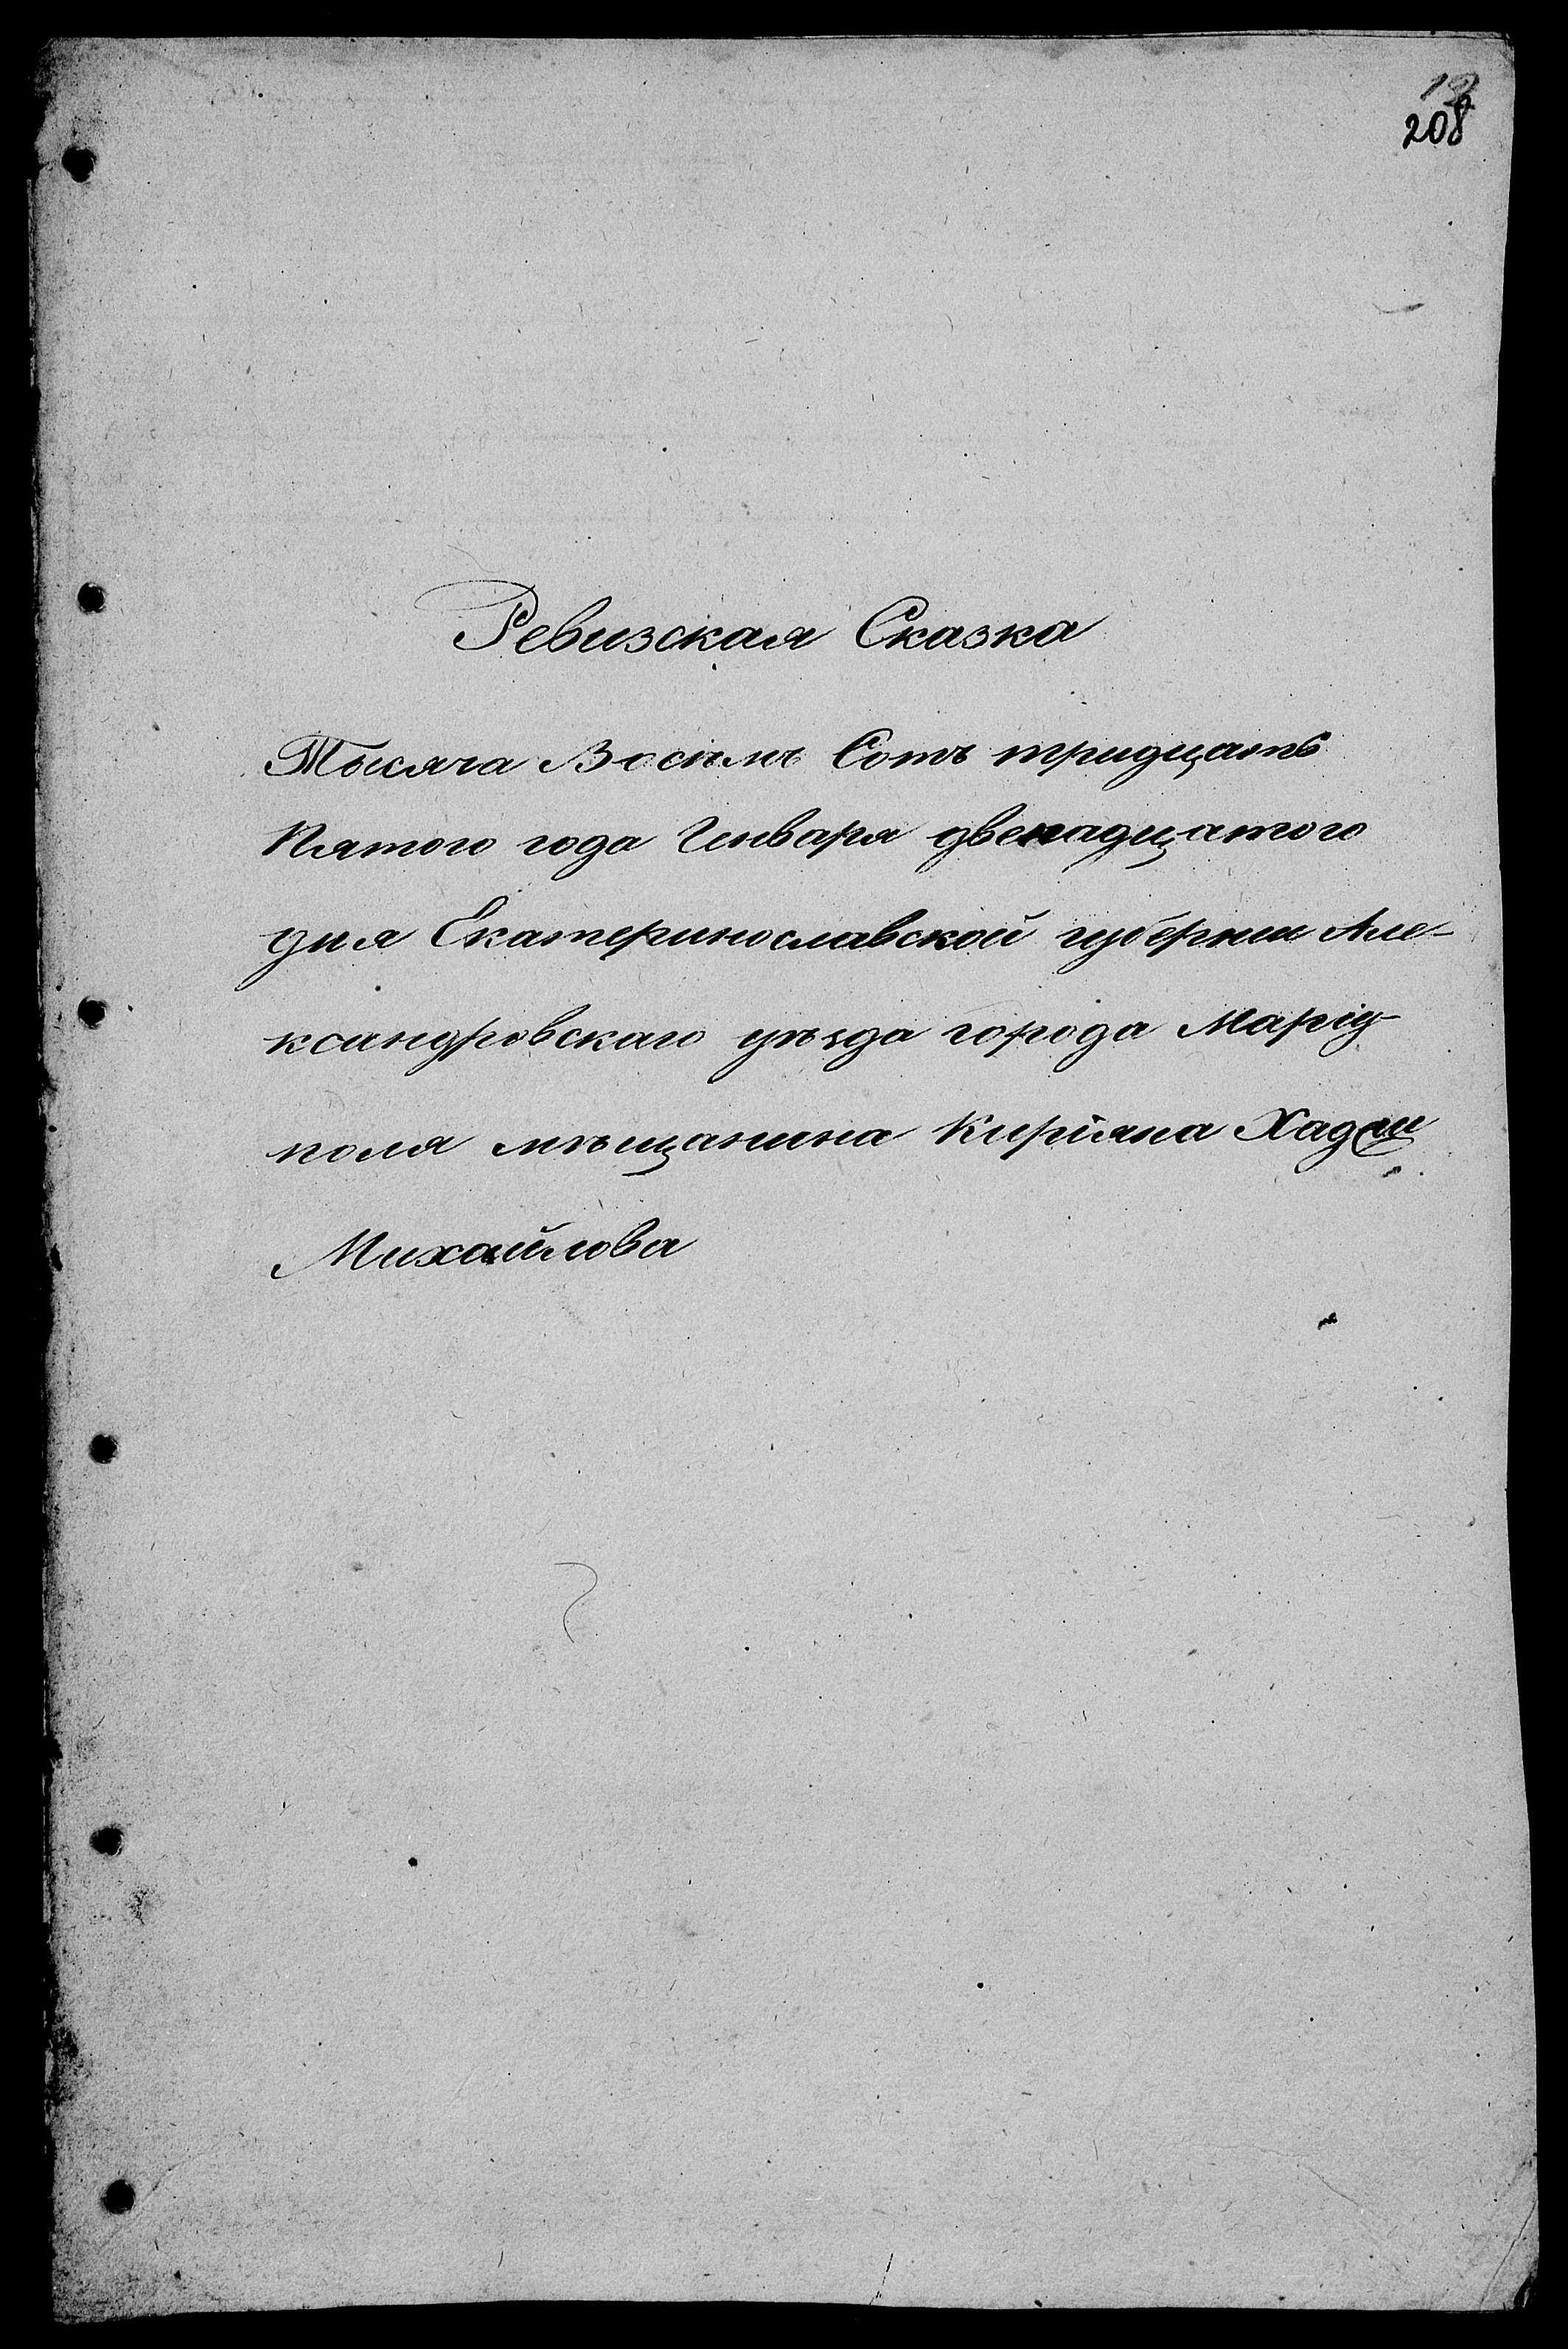 208
Ревизская Сказка
Тысяча Восемъ Сотъ тридцать
Пятого года Генваря двенадцатого
дня Екатеринославской губернии Але-
ксандровскаго уѣзда города Маріу-
поля мѣщанина Киріяна Хаджи
Михайлова